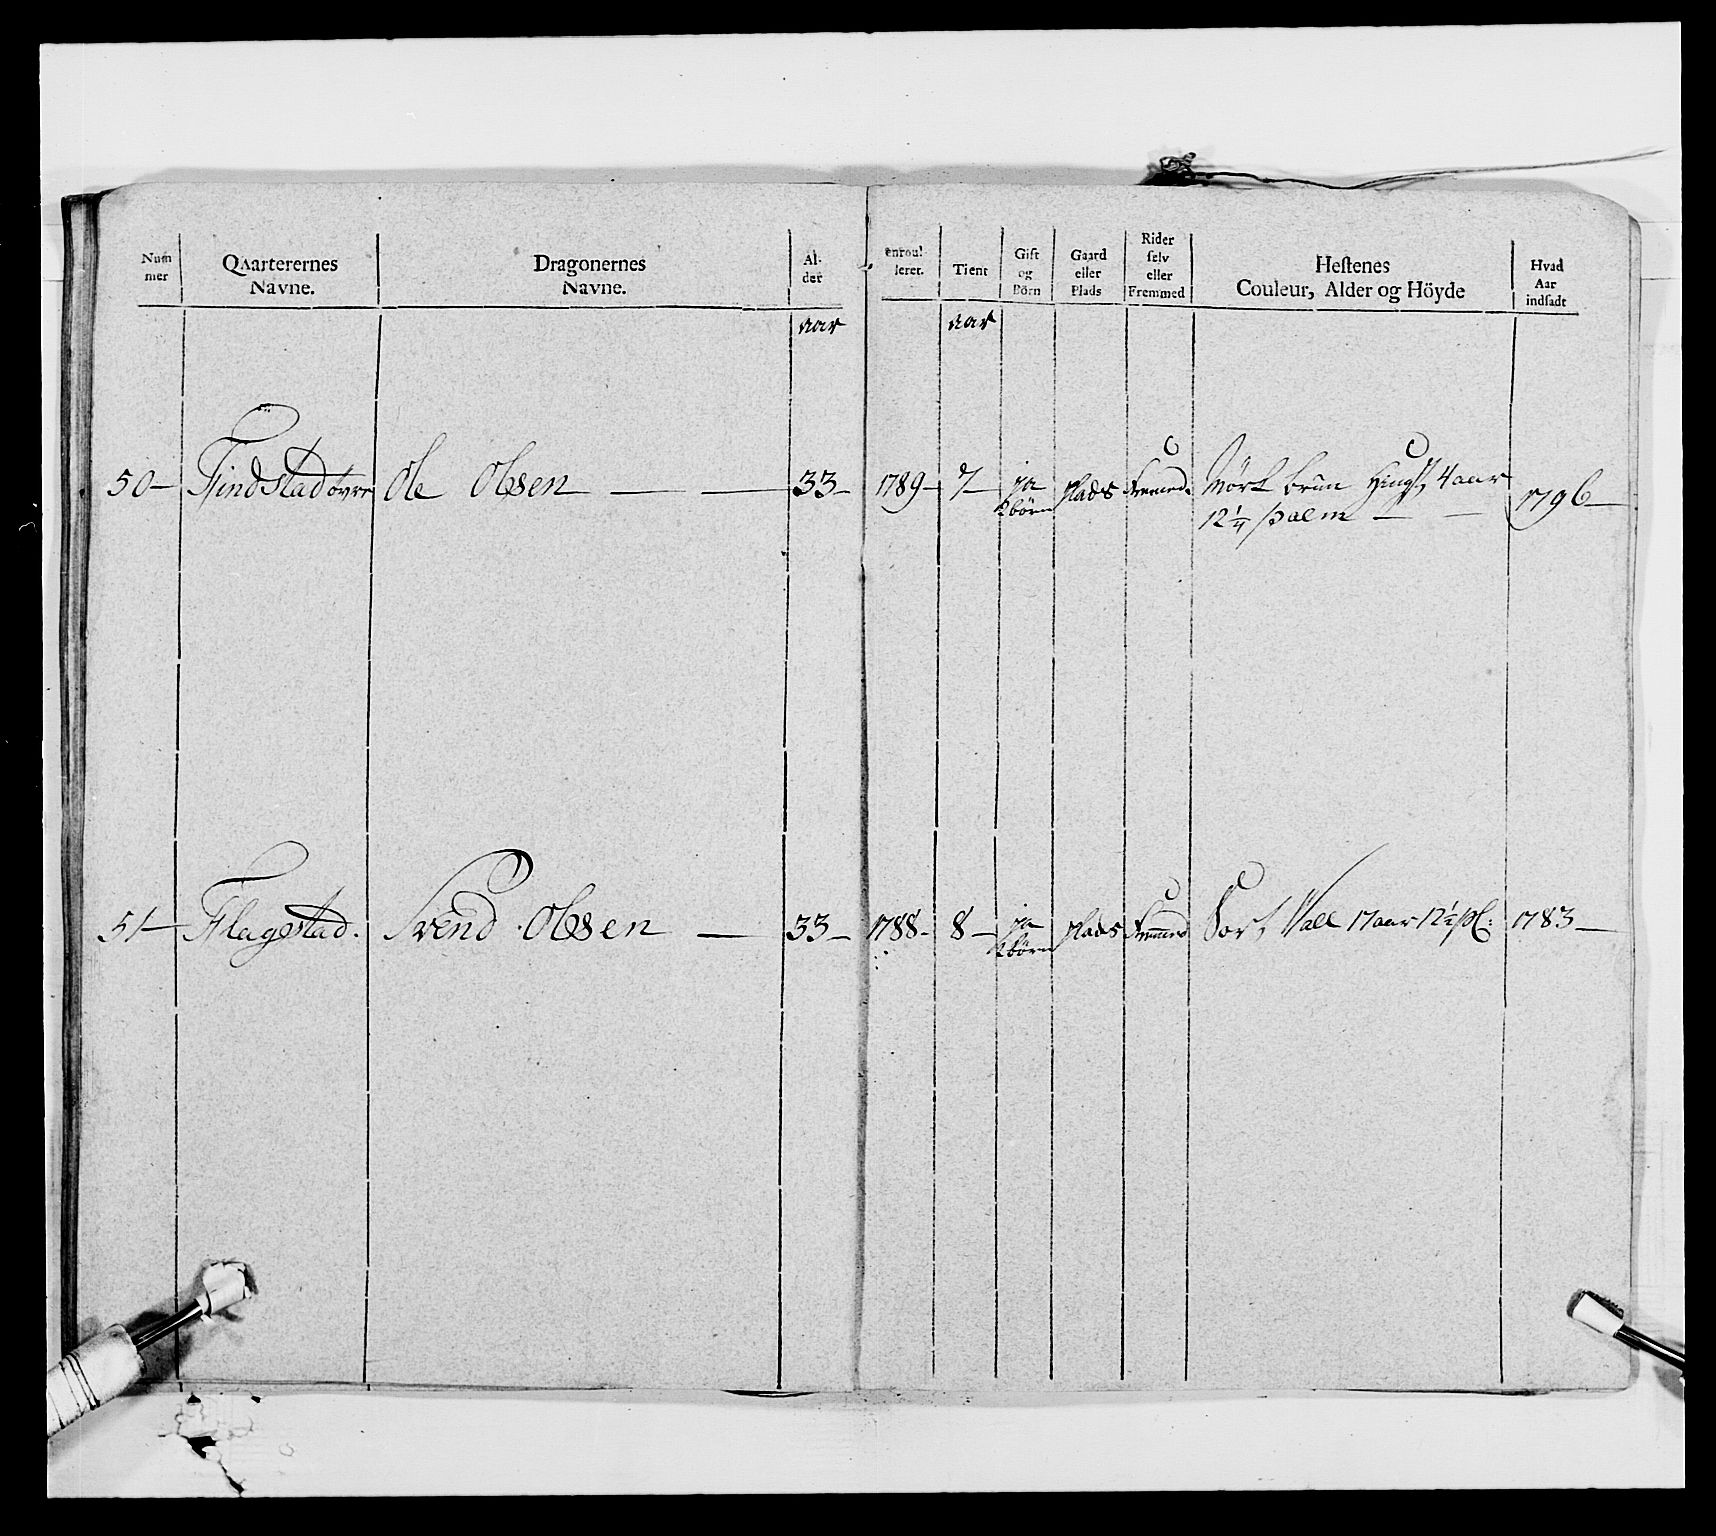 Num mer | Qvarterernes Navne. | Dragonernes Navne. | Al- der | enroul- leret. | Tient | Gift og Börn | Gaard eller Plads | Rider selv eller Fremmed | Hestenes Couleur, Alder og Höyde | Hvad Aar indsadt
aar | aar
50 | Findstad övre | Ole Olsen | 33 | 1789 | 7 | ja 2 börn | plads | fremed. | Mörk brun Hingst, 4 aar 12 1/4 palm | 1796
51 | Flagestad. | Svend Olsen | 33 | 1788 | 8 | ja 2 börn | plads | fremmed | Sort Vall 17 aar 12 1/2 pl: | 1783